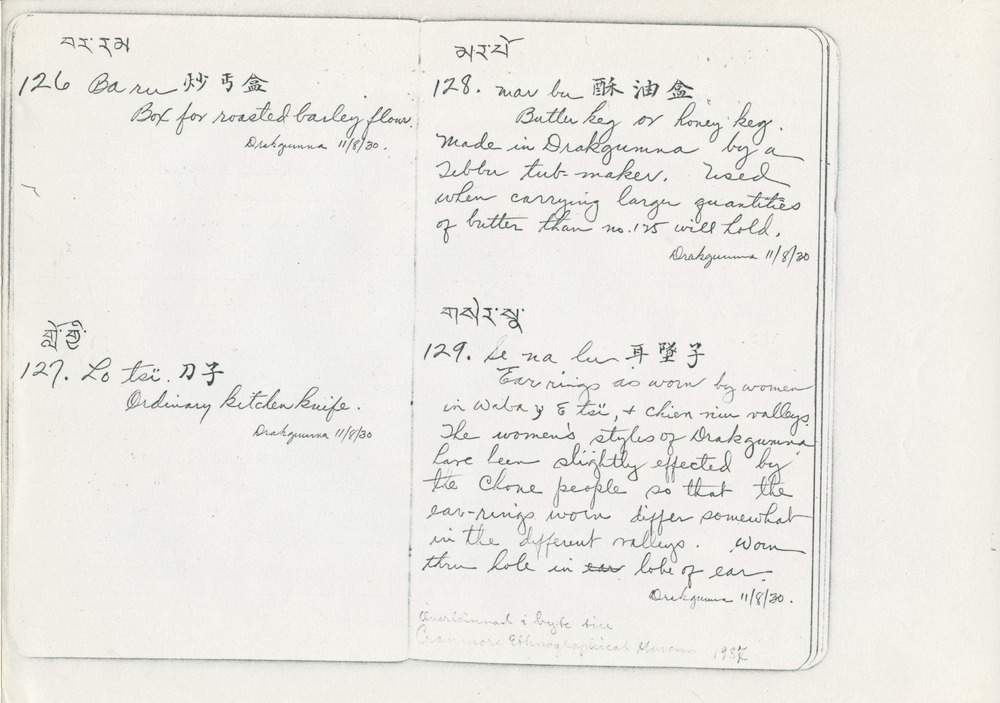 བར་རམ
126 Ba ru 炒丐盒
Box for roasted barley flour.
Drakgumna 11/8/30.
127. Lo tsï. 刀子
Ordinary kitchen knife.
Drakgumna 11/8/30
མར་པོ
128. mar bu 酥油盒
Butter keg or honey keg.
Made in Drakgumna by a
Tebbu tub-maker. Used
when carrying larger quantities
of butter than no. 125 will hold.
Drakgumna 11/8/30
129. Se na lu 耳墜子
Ear rings as worn by women
in Waba y E tsï, + Chien niu valleys.
The women's styles of Drakgumna
have been slightly effected by
the Chone people so that the
ear-rings worn differ somewhat
in the different valleys. Worn
thru hole in ear lobe of ear.
Drakgumna 11/8/30.
Cranmore Ethnographical Museum 1937